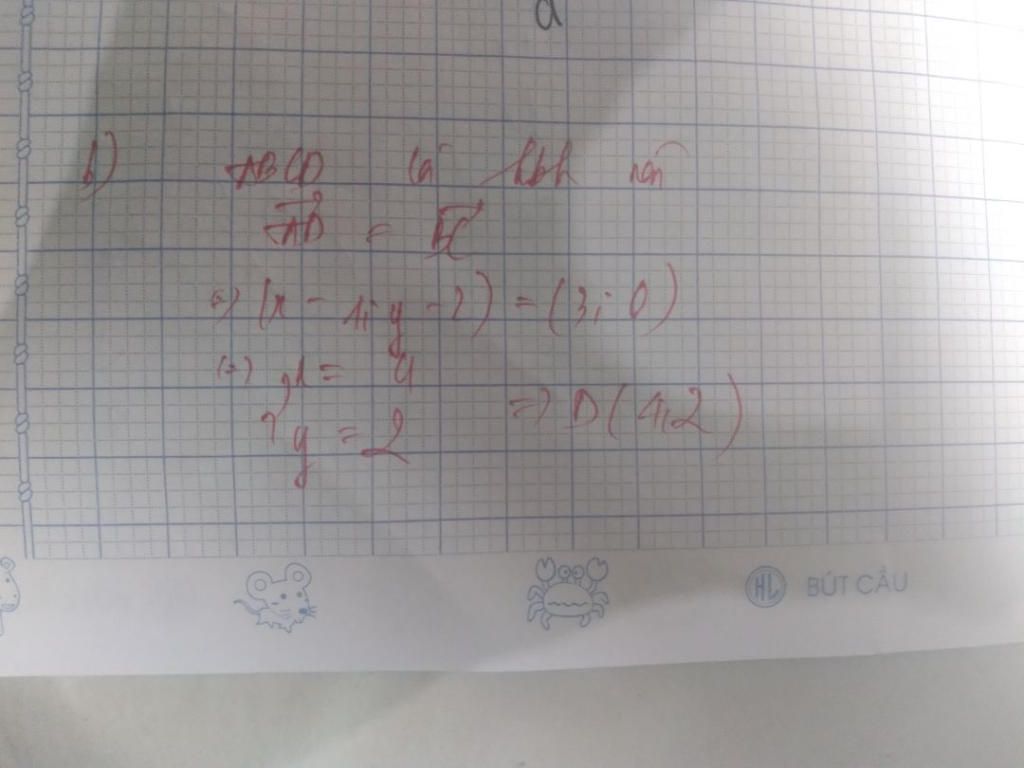 a
b) ABCD là hbh nên
AD = BC
(=) (x - 1; y - 2) = (3; 0)
(=) x = 4
y = 2 => D(4; 2)
HL BÚT CẦU